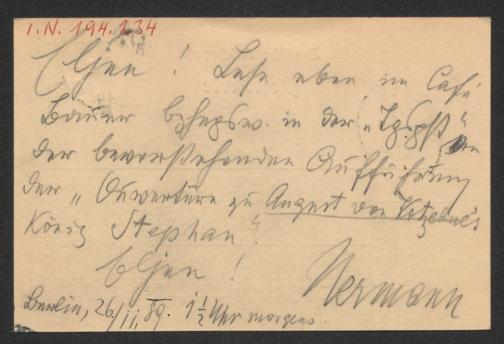 I.N. 194.234
Eljen! Lese eben im Café
Bauer in der „Tg. Pst“ von
der bevorstehenden Aufführung
der „Ouverture zu August von Kotzebue's
König Stephan“.
Eljen! Hermann
Berlin, 26/II. 89. 1 1/2 Uhr morgens.